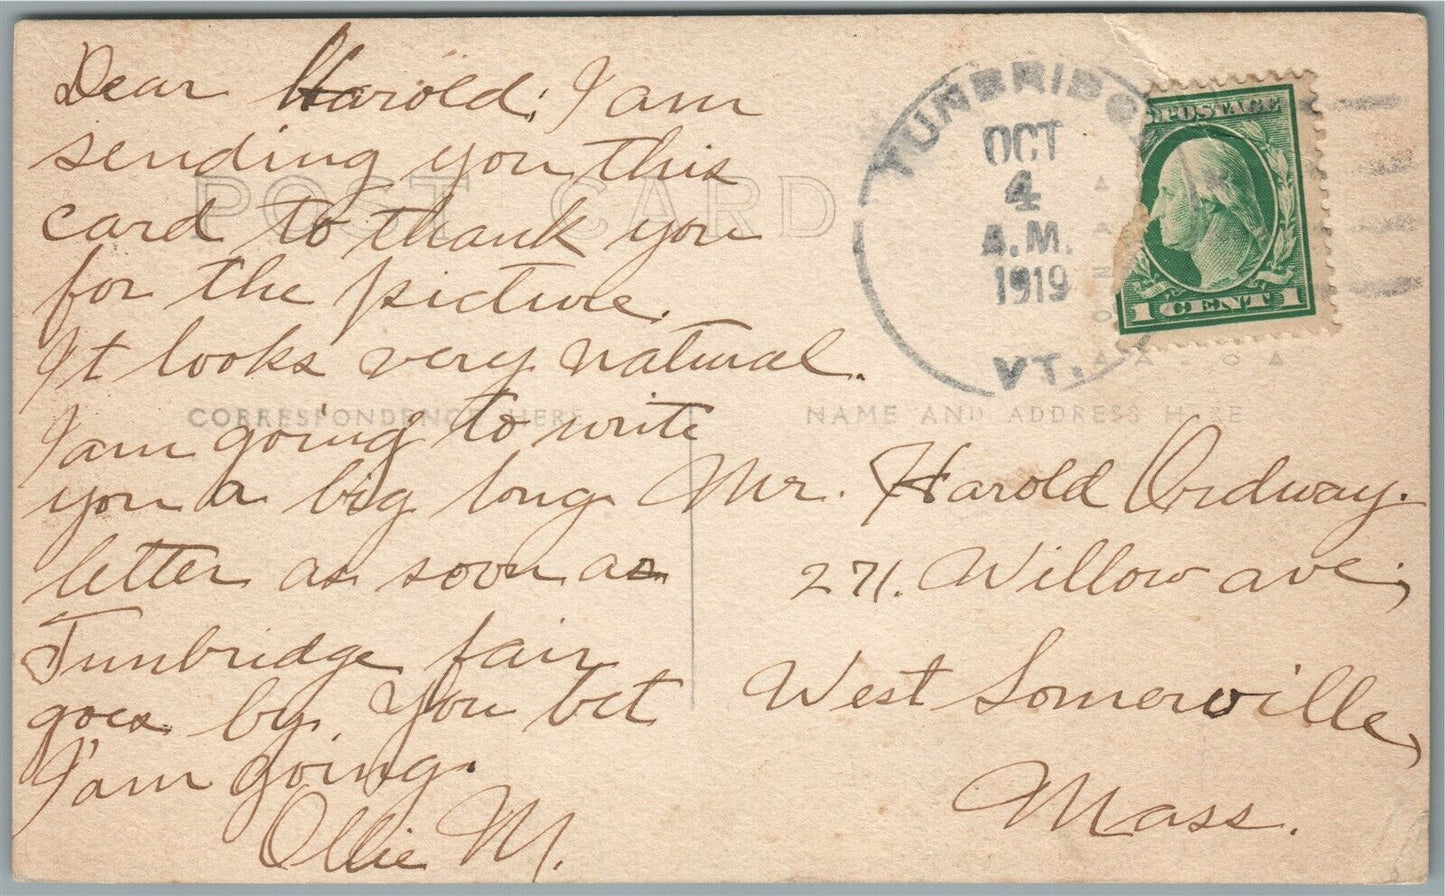 Dear Harold; I am
sending you this
card to thank you
for the picture.
It looks very natural.
I am going to write
you a big long
letter as soon as
Tunbridge fair
goes by. You bet
I'am going.
Ollie M.
POST CARD
CORRESPONDENCE HERE
NAME AND ADDRESS HERE
TUNBRIDGE
OCT
4
A.M.
1919
VT.
POSTAGE
1 CENT 1
Mr. Harold Ordway.
271. Willow ave;
West Somerville,
Mass.